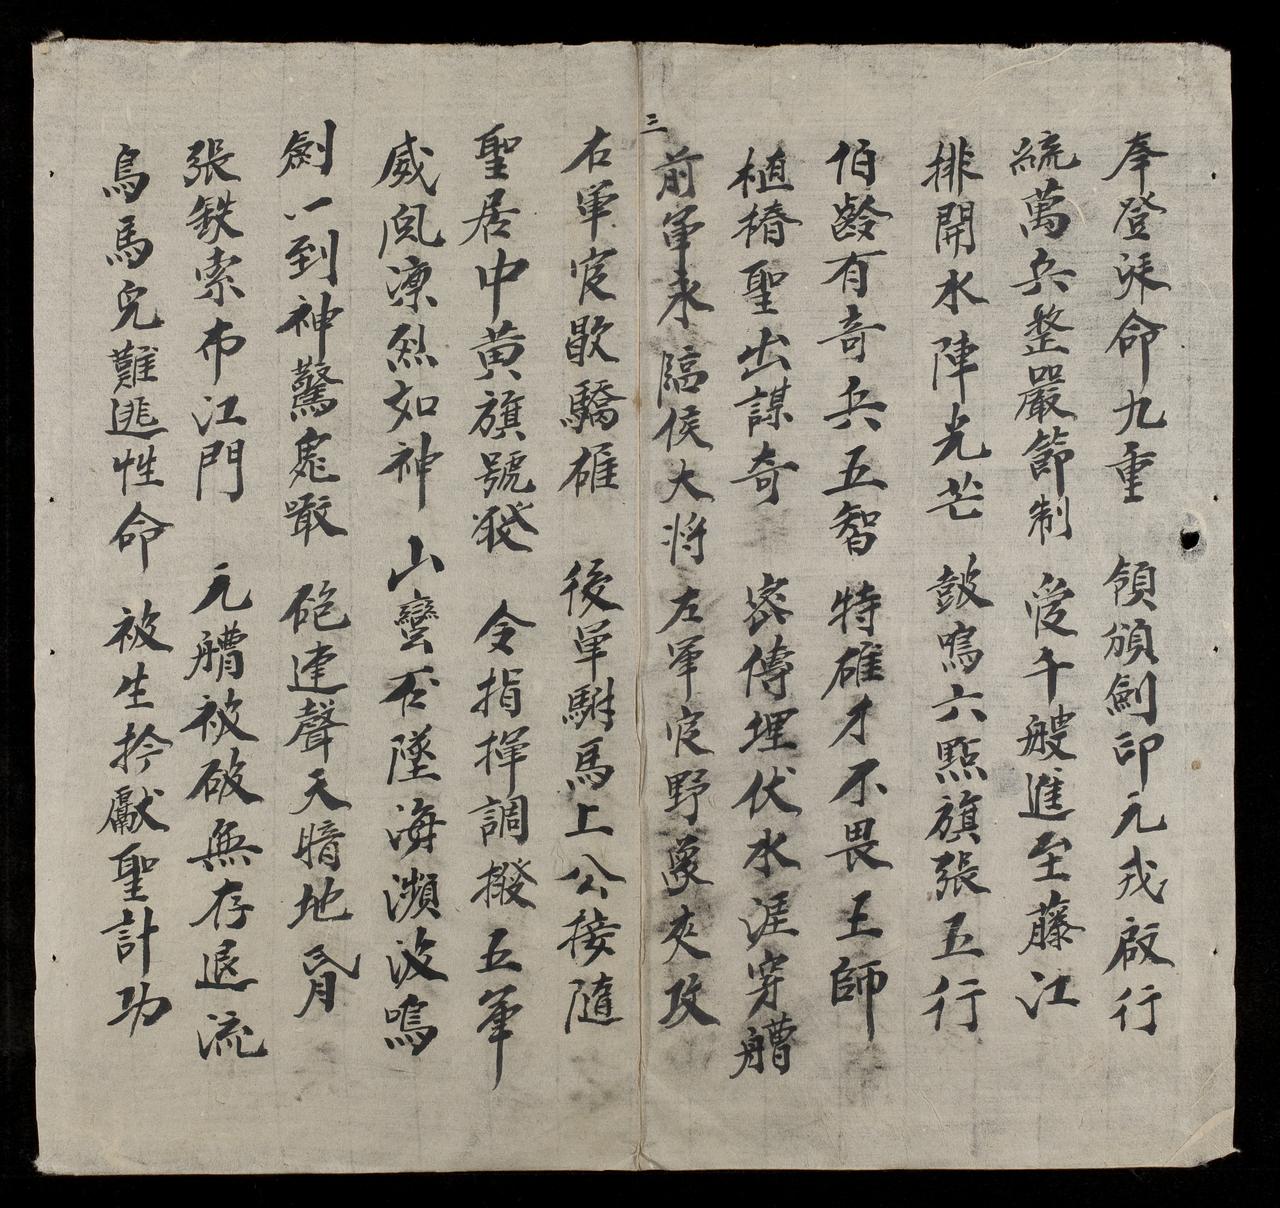 奉登派命九重 領頒劍印元戎啟行
統萬兵整嚴節制 愛千艘進至藤江
排開水陣光芒 鼓鳴六點旗張五行
伯齡有奇兵五智 特雄才不畏王師
植樁聖出謀奇 密傳埋伏水涯穿艚
三
前軍永隔侯大將左軍官野象夾攻
右軍官歇驕雄 後軍駙馬上公接隨
聖居中黄旗號發 令指揮調撥五軍
威風凛烈如神 山蠻石墜海瀕波鳴
劍一到神驚鬼㗋 砲連聲天暗地昏
張鉄索布江門 元艚被破無存退流
烏馬兒難逃性命 被生扲獻聖計功